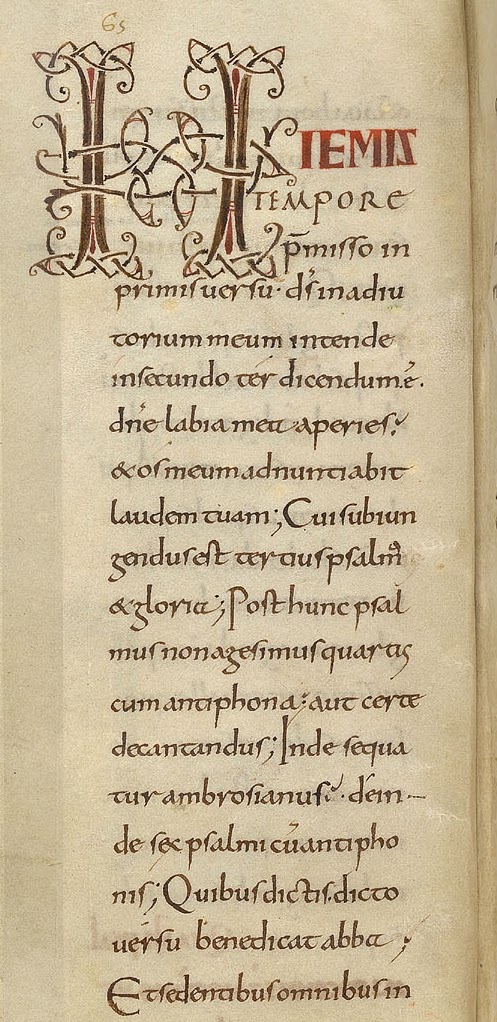 65
HIEMIS
TEMPORE
p̄misso in
primis versu· d̄s in adiu
torium meum intende
in secundo ter dicendum.ē.
dn̄e labia mea aperies;
& os meum adnuntiabit
laudem tuam; Cui subiun
gendus est tertius psalmꝰ
& gloria; Post hunc psal
mus nonagesimus quartus
cum antiphona; aut certe
decantandus; Inde sequa
tur ambrosianus;· dein
de sex psalmi cū antipho
nis; Quibus dictis. dicto
versu benedicat abba;
Et sedentibus omnibus in